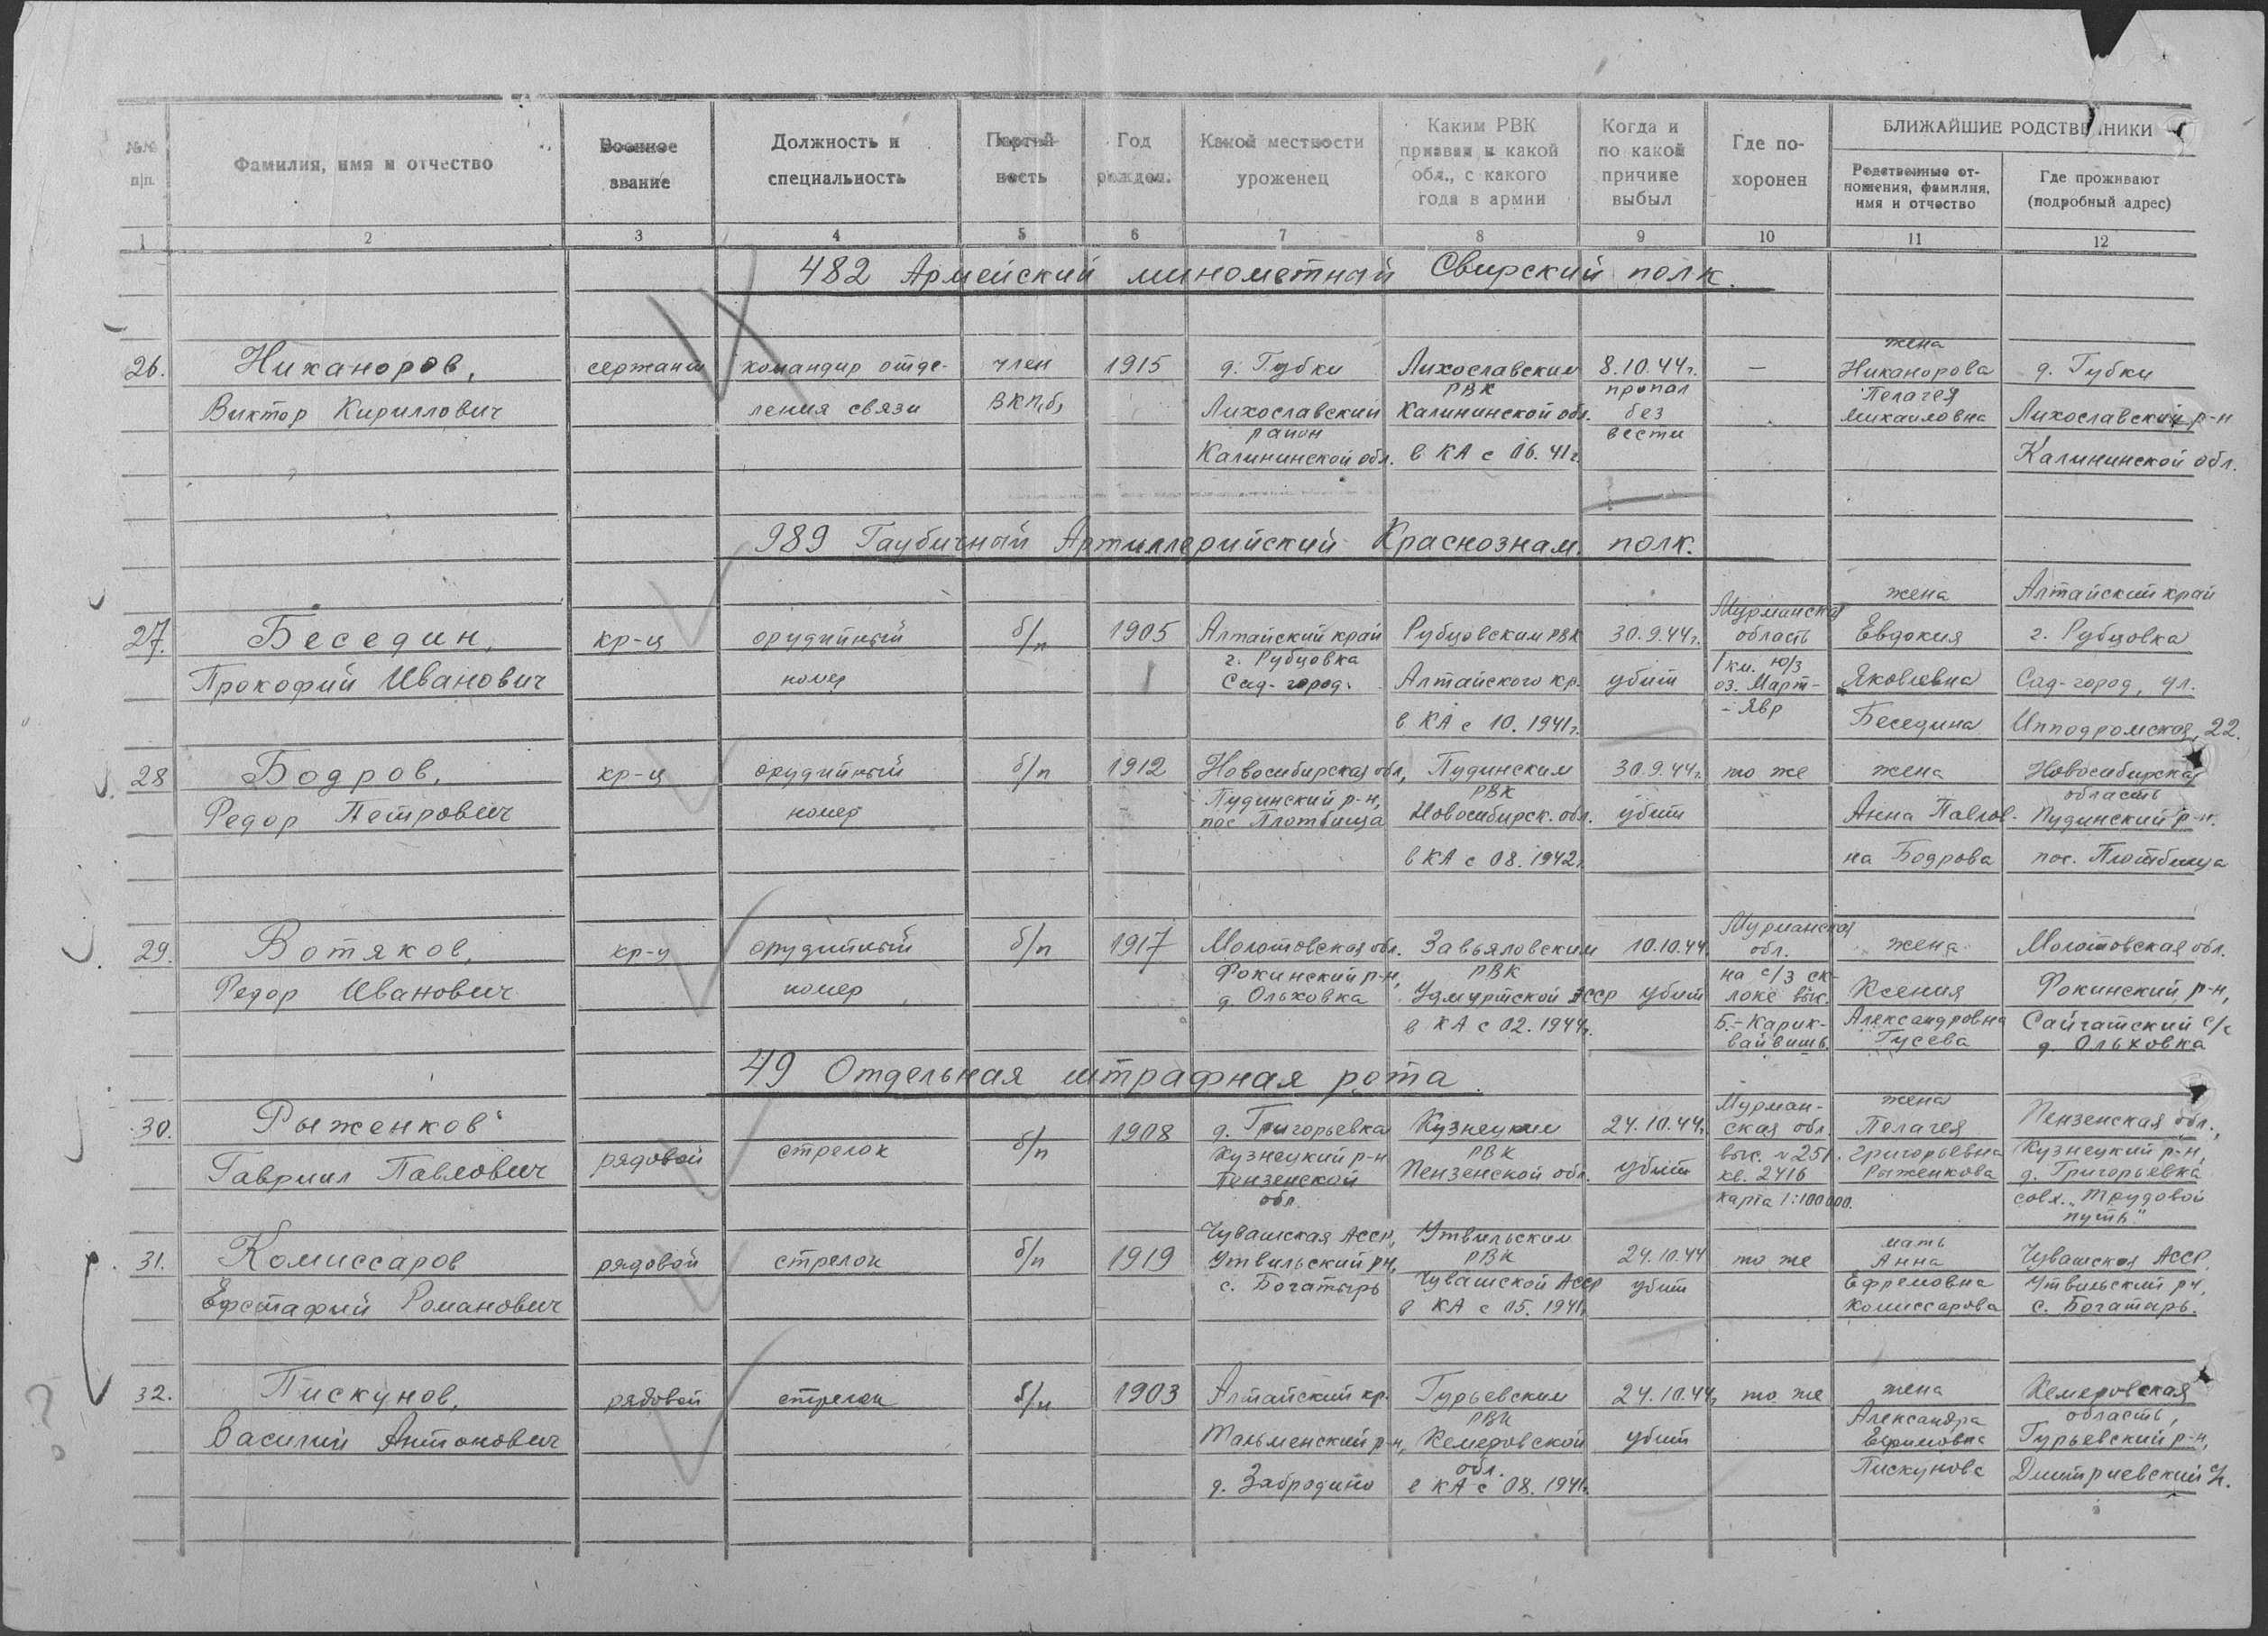 №№ п/п.
Фамилия, имя и отчество
Военное звание
Должность и специальность
Партийность
Год рожден.
Какой местности уроженец
Каким РВК призван и какой обл., с какого года в армии
Когда и по какой причине выбыл
Где похоронен
БЛИЖАЙШИЕ РОДСТВЕННИКИ
Родственные отношения, фамилия, имя и отчество
Где проживают (подробный адрес)
1 2 3 4 5 6 7 8 9 10 11 12
482 Армейский минометный Свирский полк.
26.
Никаноров,
Виктор Кириллович
сержант
командир отде-
ления связи
член
ВКП(б)
1915
д. Губки
Лихославский
район
Калининской обл.
Лихославским
РВК
Калининской обл.
в КА с 06.41 г.
8.10.44 г.
пропал
без
вести
–
жена
Никанорова
Пелагея
Михайловна
д. Губки
Лихославский р-н
Калининской обл.
989 Гаубичный Артиллерийский Краснознам. полк.
27.
Беседин,
Прокофий Иванович
кр-ц
орудийный
номер
б/п
1905
Алтайский край
г. Рубцовка
Сад-город.
Рубцовским РВК
Алтайского кр.
в КА с 10.1941 г.
30.9.44 г.
убит
Мурманская
область
1 км. ю/з
оз. Март-
- Явр
жена
Евдокия
Яковлевна
Беседина
Алтайский край
г. Рубцовка
Сад-город, ул.
Ипподромская, 22.
28
Бодров,
Федор Петрович
кр-ц
орудийный
номер
б/п
1912
Новосибирская обл,
Пудинский р-н,
пос Плотбища
Пудинским
РВК
Новосибирск. обл.
в КА с 08.1942 г.
30.9.44 г.
убит
то же
жена
Анна Павлов-
на Бодрова
Новосибирская
область
Пудинский р-н.
пос. Плотбища
29.
Вотяков,
Федор Иванович
кр-ц
орудийный
номер
б/п
1917
Молотовская обл.
Фокинский р-н,
д. Ольховка
Завьяловским
РВК
Удмуртской АССР
в КА с 02.1944 г.
10.10.44.
убит
Мурманская
обл.
на с/з ск-
локе выс.
Б.-Карик-
вайвишь.
жена
Ксения
Александровна
Гусева
Молотовская обл.
Фокинский р-н,
Сайгатский с/с
д. Ольховка
49 Отдельная штрафная рота.
30.
Рыженков
Гавриил Павлович
рядовой
стрелок
б/п
1908
д. Григорьевка
Кузнецкий р-н
Пензенской
обл.
Кузнецким
РВК
Пензенской обл.
24.10.44 г.
убит
Мурман-
ская обл.
выс. № 251.
кв. 2416
карта 1:100 000.
жена
Пелагея
Григорьевна
Рыженкова
Пензенская обл.,
Кузнецкий р-н,
д. Григорьевка
совх. „Трудовой
путь"
31.
Комиссаров
Ефстафий Романович
рядовой
стрелок
б/п
1919
Чувашская АССР,
Утвильский р-н,
с. Богатырь
Утвильским
РВК
Чувашской АССР
в КА с 05.1941 г.
24.10.44
убит
то же
мать
Анна
Ефремовна
Комиссарова
Чувашская АССР.
Утвильский р-н,
с. Богатырь.
32.
Пискунов,
Василий Антонович
рядовой
стрелок
б/п
1903
Алтайский кр.
Тальменский р-н,
д. Забродино
Гурьевским
РВК
Кемеровской
обл.
в КА с 08.1941 г.
24.10.44 г,
убит
то же
жена
Александра
Ефимовна
Пискунова
Кемеровская
область,
Гурьевский р-н,
Дмитриевский с/с.
?